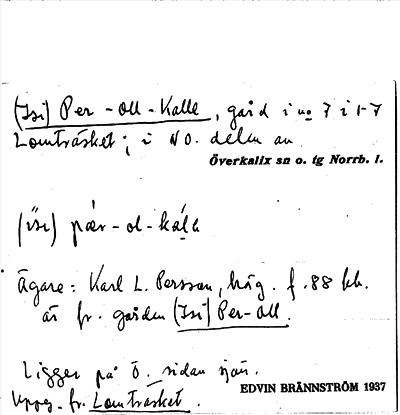 (Isi) Per-Oll-Kalle, gård i no 7 i 1-7
Lomträsket; i NO. delen av
Överkalix sn o. tg Norrb. l.
(ìsı) pǽr-ol-kálɩ
Ägare: Karl L. Persson, häg. f. 88 hh.
är fr. gården (Isi) Per-Oll.
Ligger på ö. sidan sjön.
Uppg. fr. Lomträsket.
EDVIN BRÄNNSTRÖM 1937